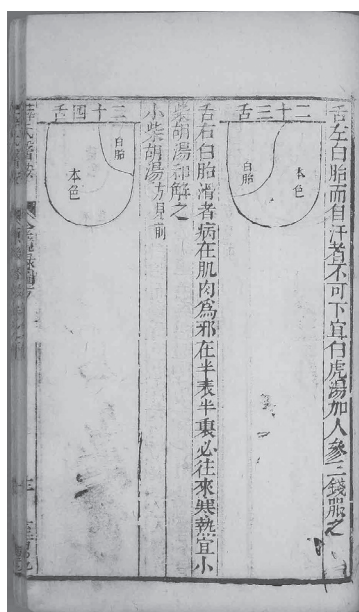 舌左白胎而自汗者不可下宜白虎湯加人參三錢服之
二十三舌
本色
白胎
舌右白胎滑者病在肌肉爲邪在半表半裏必往來寒熱宜小
柴胡湯和解之
小柴胡湯方見前
二十四舌
白胎
本色